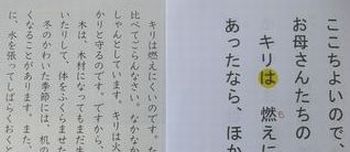 ここちよいので、
お母さんたちの
キリは燃えに
あったなら、ほか
キリは燃えにくいのです。な
比べてごらんなさい。なかなか
しゃんとしています。キリは火
かりと守るのです。ですから、
木は、木材になってもまだ生
いたりして、体をふくらませた
冬のかわいた季節には、机の
くなることがあります。また、
に、水を張ってしばらくおくと